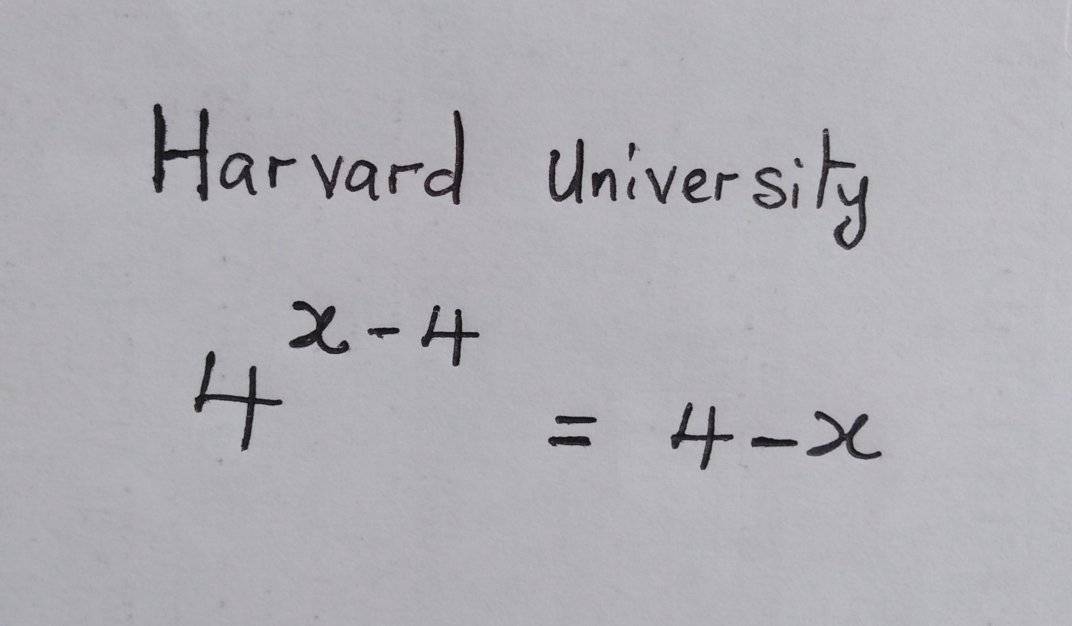 Harvard University
4^{x-4} = 4-x